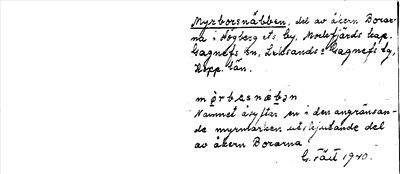 Myrborsnäbben, del av åkern Borar-
na i Högberg ets. by, Mockfjärds kap.
Gagnefs sn, Leksands o Gagnefs tg,
Kopp. län.
Namnet åsyftar en i den angränsan-
de myrmarken utskjutande del
av åkern Borarna.
G. 1940.